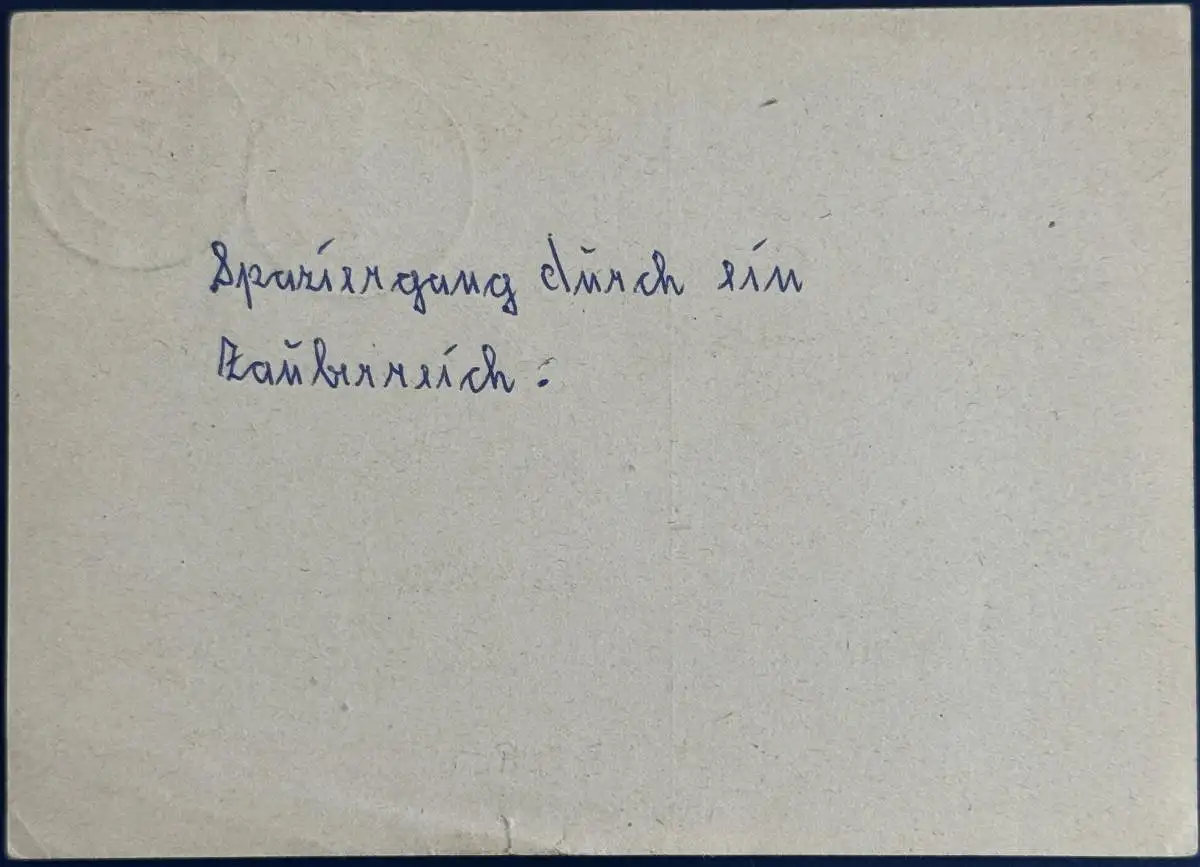 Spaziergang durch ein
Zauberreich.